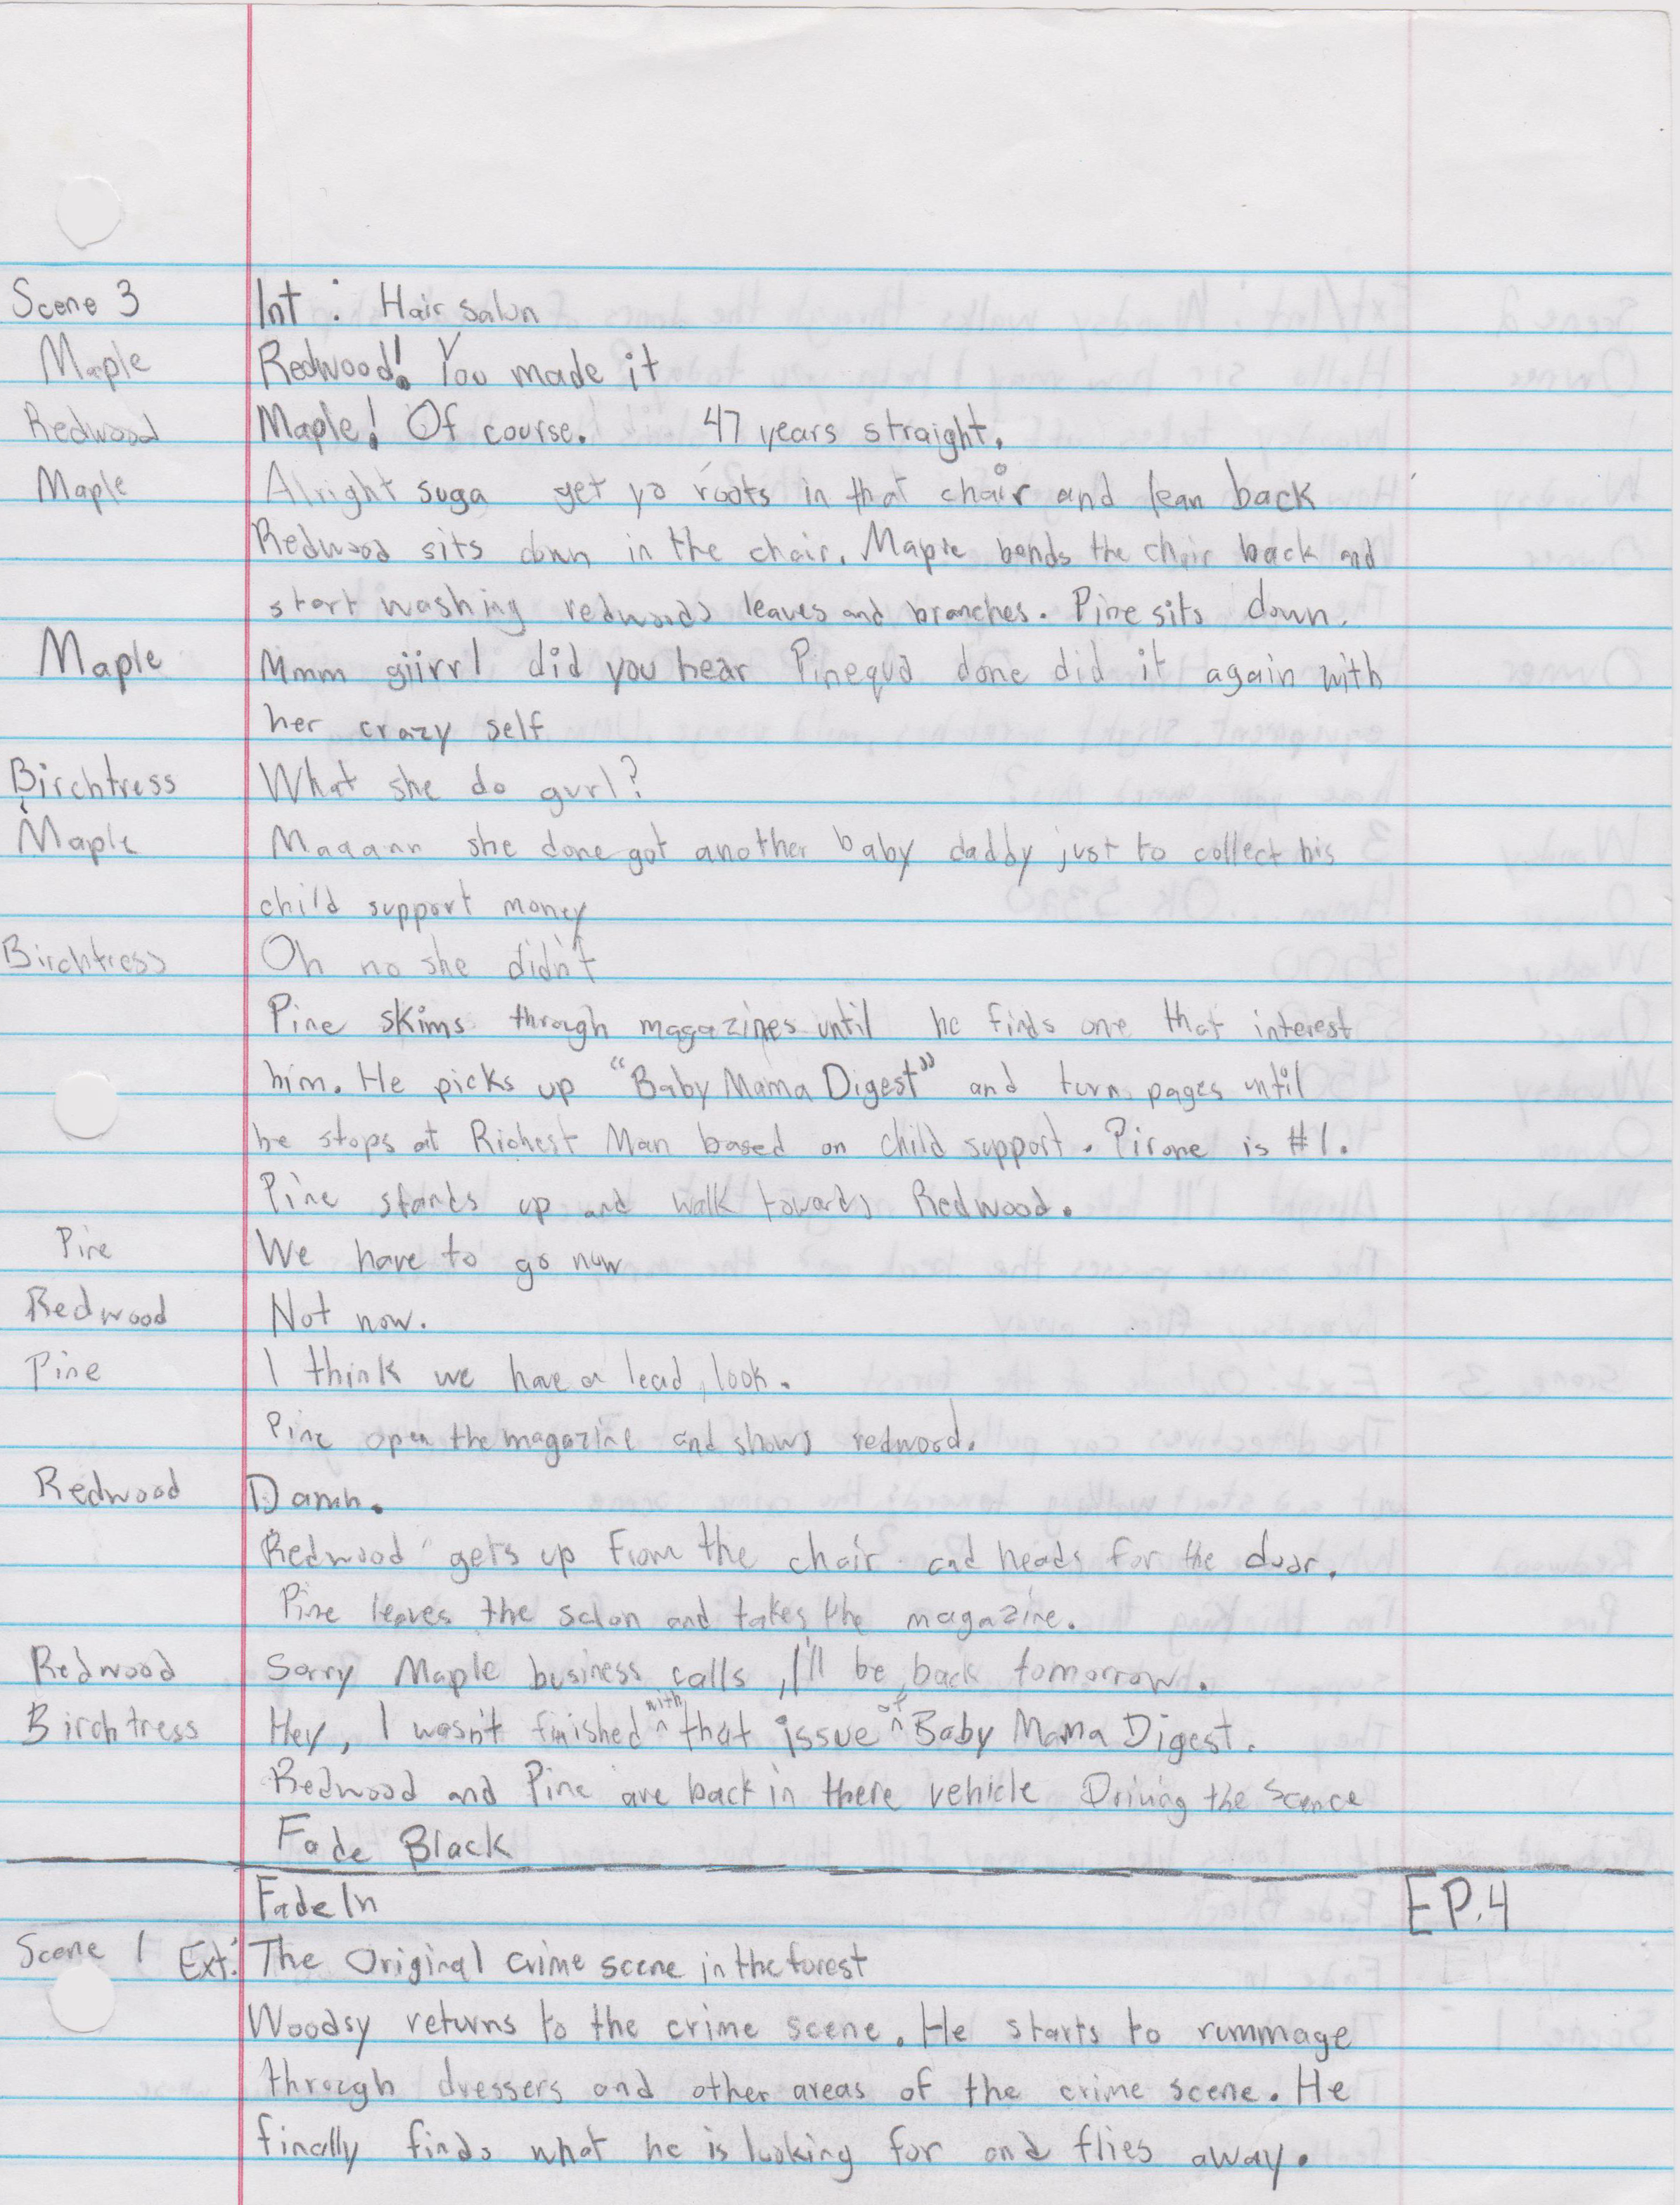 Scene 3 Int : Hair salon
Maple Redwood! You made it
Redwood Maple! Of course. 47 years straight.
Maple Alright suga get yo roots in that chair and lean back
Redwood sits down in the chair. Maple bends the chair back and
start washing redwoods leaves and branches. Pine sits down.
Maple Mmm giirrl did you hear Pinequa done did it again with
her crazy self
Birchtress What she do gurl?
Maple Maaann she done got another baby daddy just to collect his
child support money
Birchtress Oh no she didn't
Pine skims through magazines until he finds one that interest
him. He picks up "Baby Mama Digest" and turn pages until
he stops at Richest Man based on child support. Pirone is #1.
Pine stands up and walk towards Redwood.
Pine We have to go now
Redwood Not now.
Pine I think we have a lead, look.
Pine open the magazine and shows redwood.
Redwood Damn.
Redwood gets up from the chair and heads for the door.
Pine leaves the salon and takes the magazine.
Redwood Sorry Maple business calls, I'll be back tomorrow.
Birchtress Hey, I wasn't finished with that issue of Baby Mama Digest.
Redwood and Pine are back in there vehicle Driving the Scence
Fade Black
Fade In EP.4
Scene 1 Ext: The Original crime scene in the forest
Woodsy returns to the crime scene. He starts to rummage
through dressers and other areas of the crime scene. He
finally finds what he is looking for and flies away.